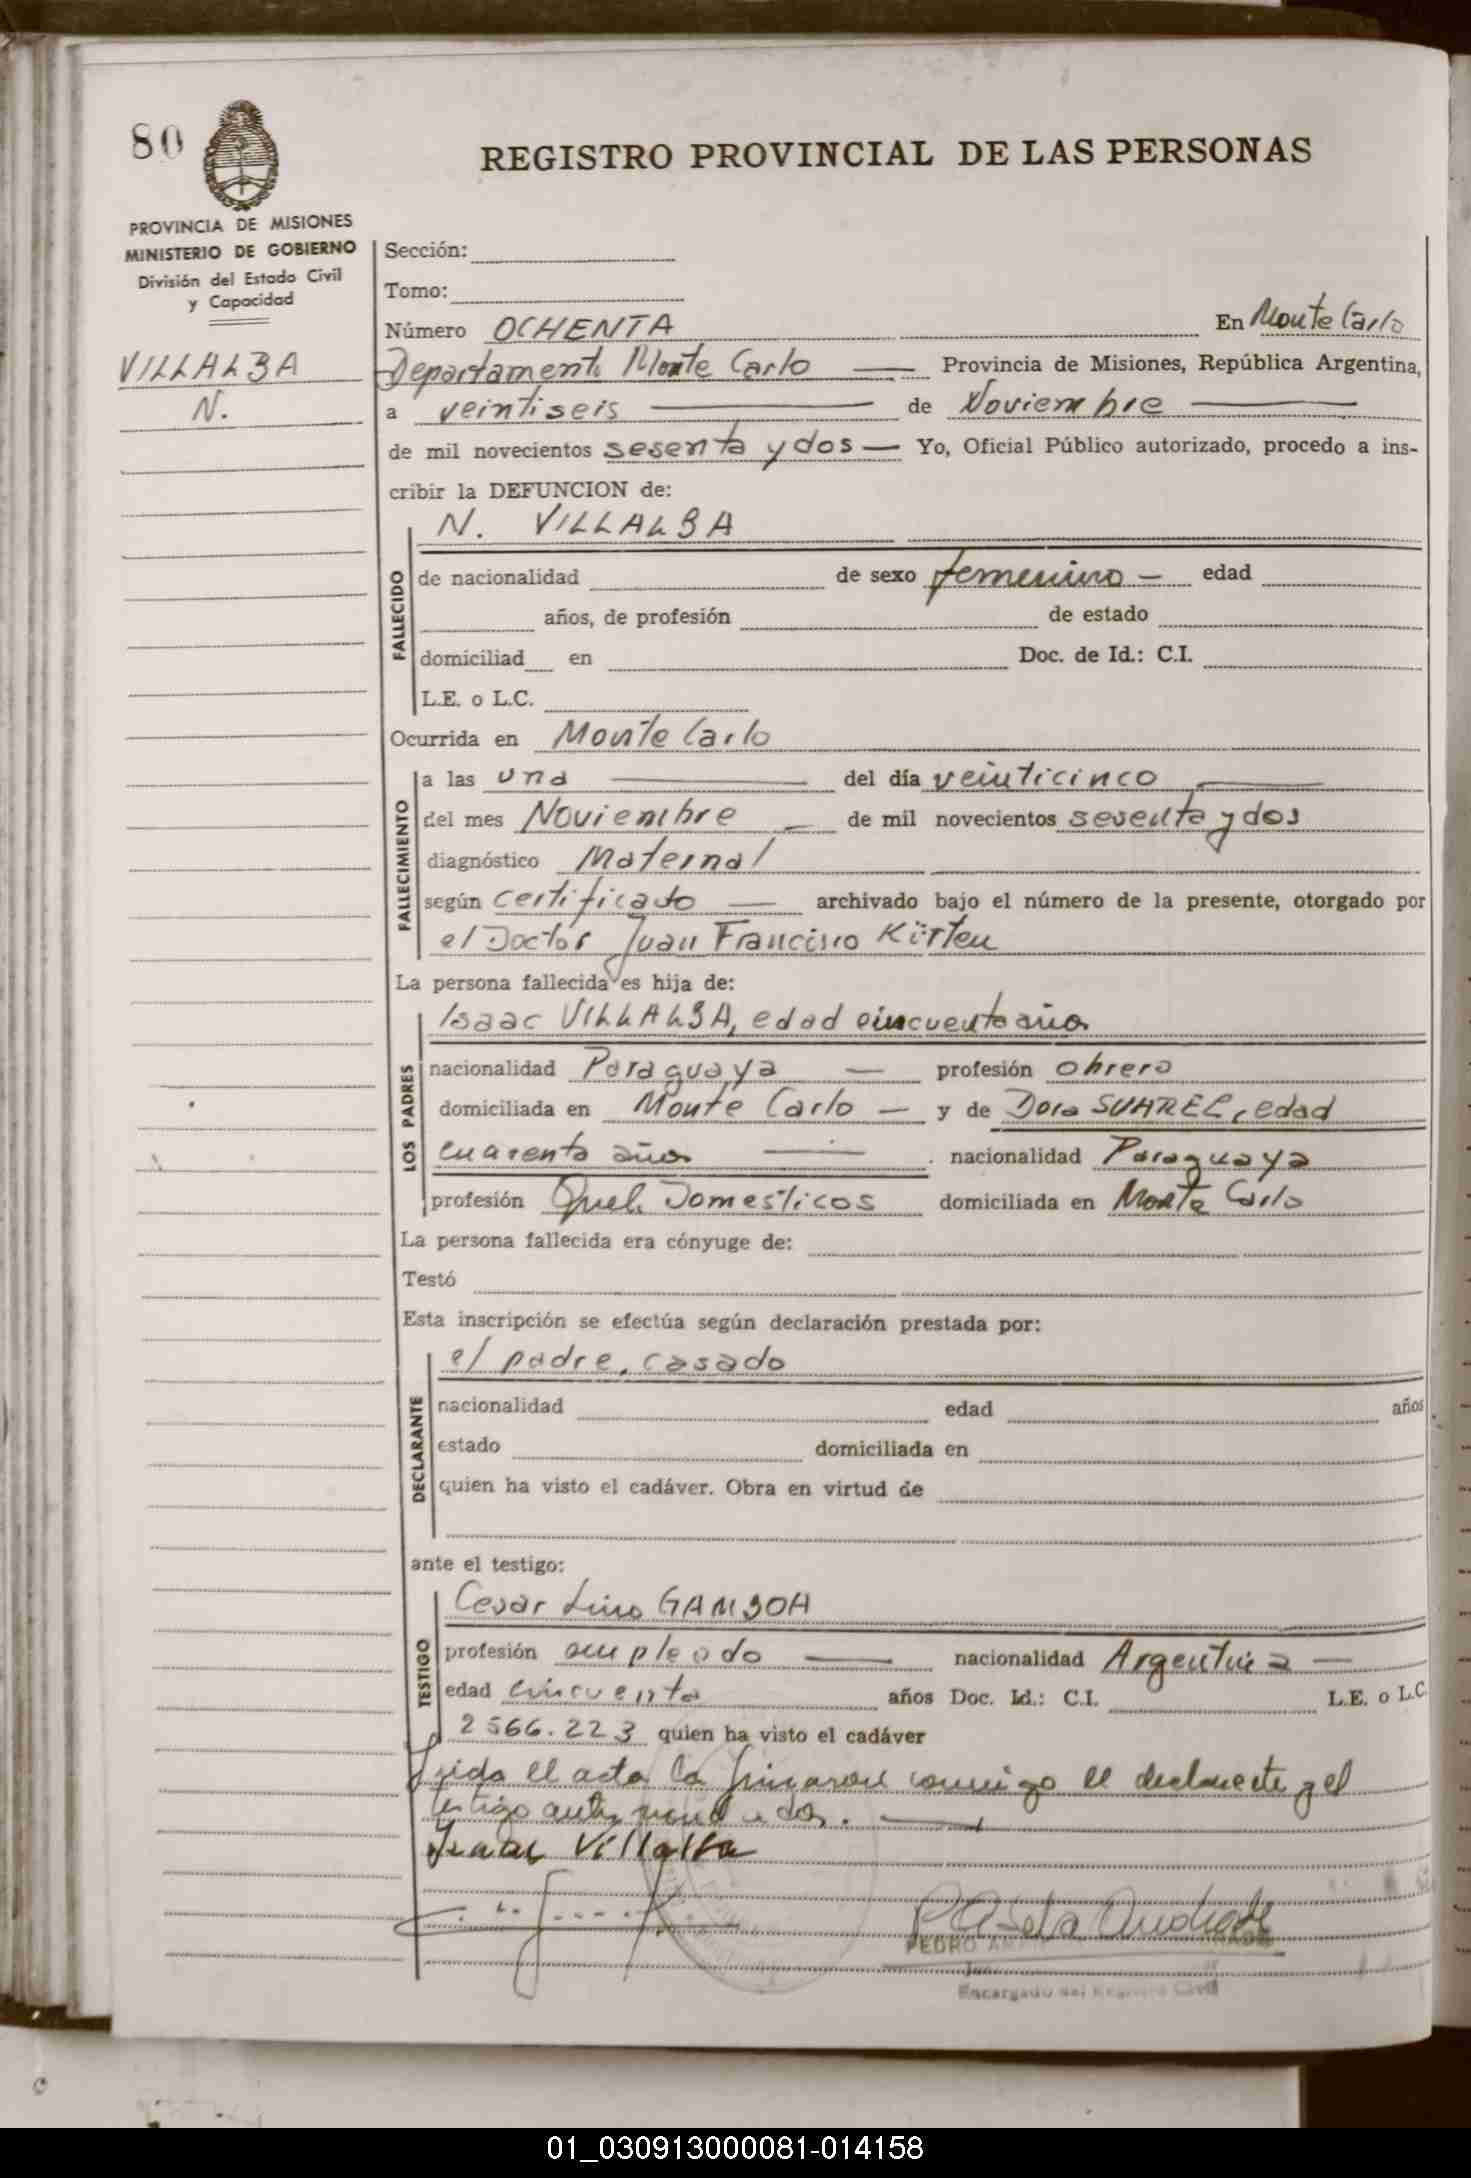 80
REGISTRO PROVINCIAL DE LAS PERSONAS
PROVINCIA DE MISIONES
MINISTERIO DE GOBIERNO
División del Estado Civil
y Capacidad
VILLALBA
N.
Sección:
Tomo:
Número OCHENTA En Monte Carlo
Departamento Monte Carlo — Provincia de Misiones, República Argentina,
a veintiseis — de Noviembre —
de mil novecientos sesenta y dos — Yo, Oficial Público autorizado, procedo a ins-
cribir la DEFUNCION de:
FALLECIDO
N. VILLALBA
de nacionalidad de sexo femenino — edad
años, de profesión de estado
domiciliad en Doc. de Id.: C.I.
L.E. o L.C.
Ocurrida en Monte Carlo
FALLECIMIENTO
a las una — del día veinticinco —
del mes Noviembre — de mil novecientos sesenta y dos
diagnóstico Maternal
según certificado — archivado bajo el número de la presente, otorgado por
el Doctor Juan Francisco Kürten
La persona fallecida es hija de:
LOS PADRES
Isaac VILLALBA, edad cincuenta años
nacionalidad Paraguaya — profesión obrero
domiciliada en Monte Carlo — y de Dora SUAREZ, edad
cuarenta años — . nacionalidad Paraguaya
profesión Queh. Domesticos domiciliada en Monte Carlo
La persona fallecida era cónyuge de:
Testó
Esta inscripción se efectúa según declaración prestada por:
DECLARANTE
el padre, casado
nacionalidad edad años
estado domiciliada en
quien ha visto el cadáver. Obra en virtud de
ante el testigo:
TESTIGO
Cesar Lino GAMBOA
profesión empleado — nacionalidad Argentina —
edad cincuenta años Doc. Id.: C.I. L.E. o L.C
2566.223 quien ha visto el cadáver
Leida el acta la firmaron conmigo el declarante y el
testigo
Isaac Villalba
PEDRO
Encargado del Registro Civil
01_030913000081-014158